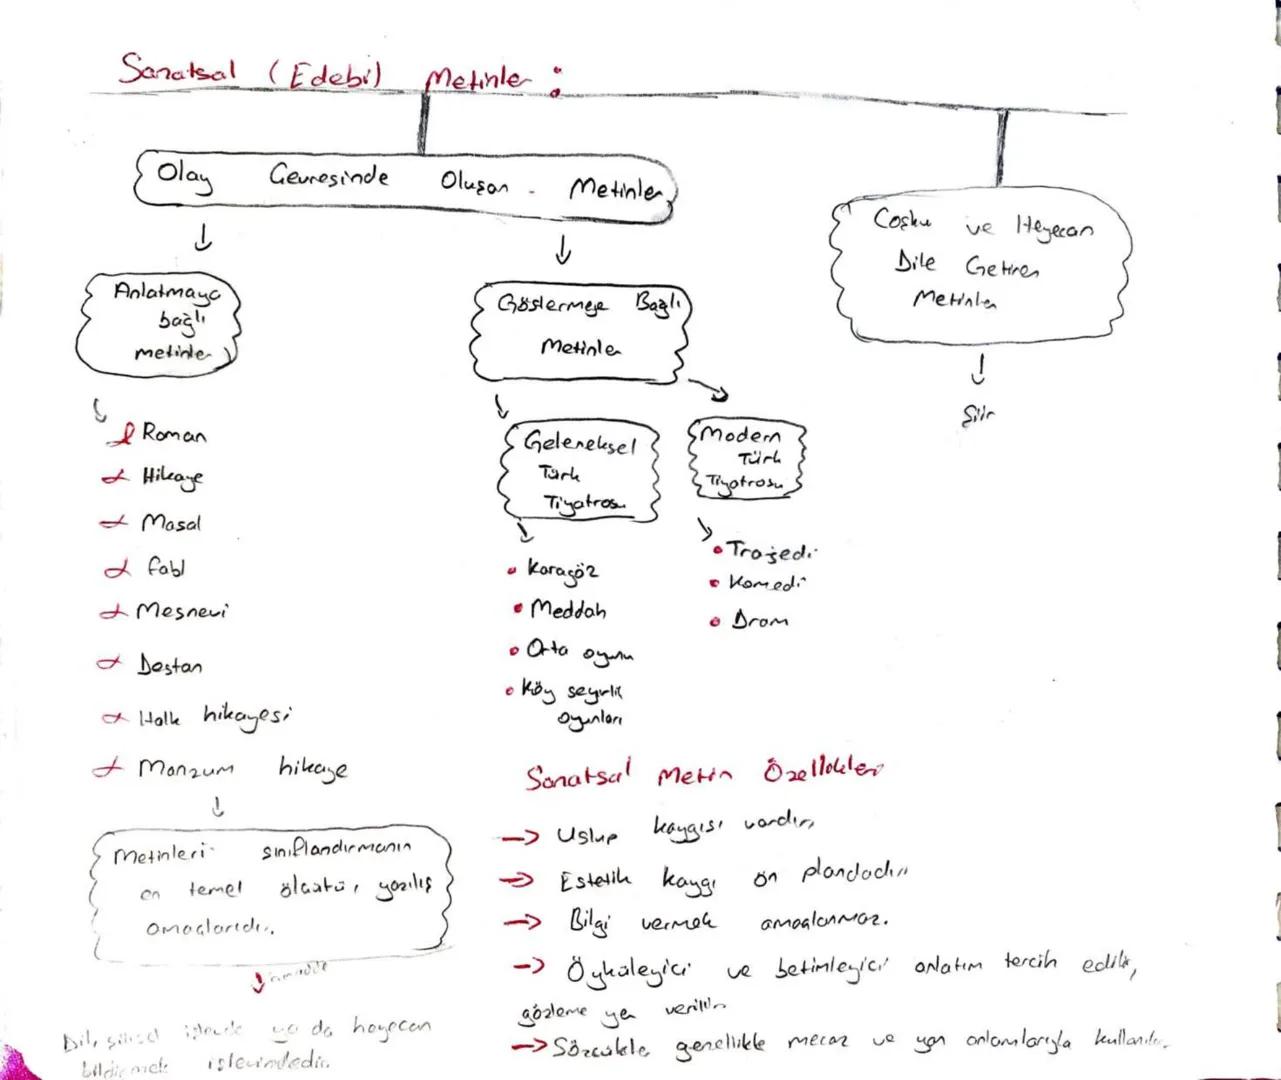 Sanatsal (Edebi) Metinler :
Olay Çevresinde Oluşan Metinler
Coşku ve Heyecan
Dile Getiren
Metinler
Şiir
Anlatmaya
bağlı
metinler
Roman
Hikaye
Masal
fabl
Mesnevi
Destan
Halk hikayesi
Manzum hikaye
Metinleri sınıflandırmanın
en temel ölçütü, yazılış
amaçlarıdır.
Göstermeye Bağlı
Metinler
Geleneksel
Türk
Tiyatrosu
• Karagöz
• Meddah
• Orta oyunu
• Köy seyirlik
oyunları
Modern
Türk
Tiyatrosu
• Trajedi
• Komedi
• Dram
Sanatsal Metin Özellikleri
→ Uslup kaygısı vardır,
→ Estetik kaygı ön plandadır
→ Bilgi vermek amaçlanmaz.
→ Öyküleyici ve betimleyici anlatım tercih edilir,
gözleme yer verilir
→ Sözcükler genellikle mecaz ve yan anlamlarıyla kullanılır.
Dil, şiirsel işlevde ya da heyecan
bildirmek işlevindedir.